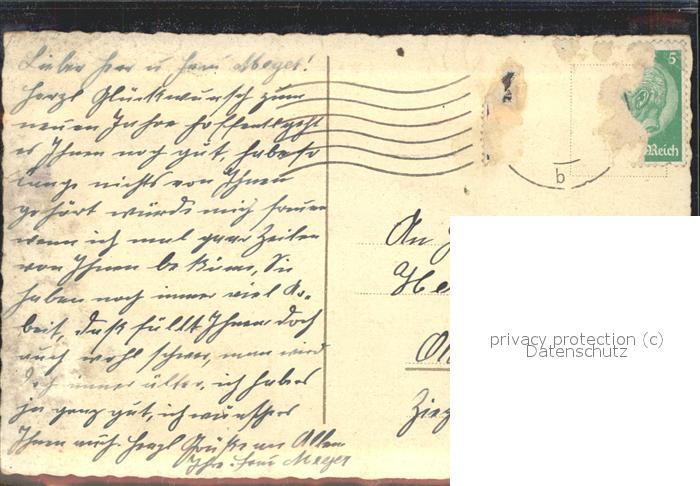 Lieber Herr u Frau Meyer!
Herzl Glückwunsch zum
neuen Jahre hoffentl geht
es Ihnen noch gut, habe so
lange nichts von Ihnen
gehört würde mich freuen
wenn ich mal paar Zeilen
von Ihnen bekäme, Sie
haben noch immer viel Ar-
beit, daß fällt Ihnen doch
auch wohl schwer, man wird
doch immer älter, ich habe es
ja ganz gut, ich wünsche es
Ihnen auch. Herzl Grüße an Allen
Ihre Frau Meyer
5
Reich
b
An
He
Zieg
privacy protection (c)
Datenschutz